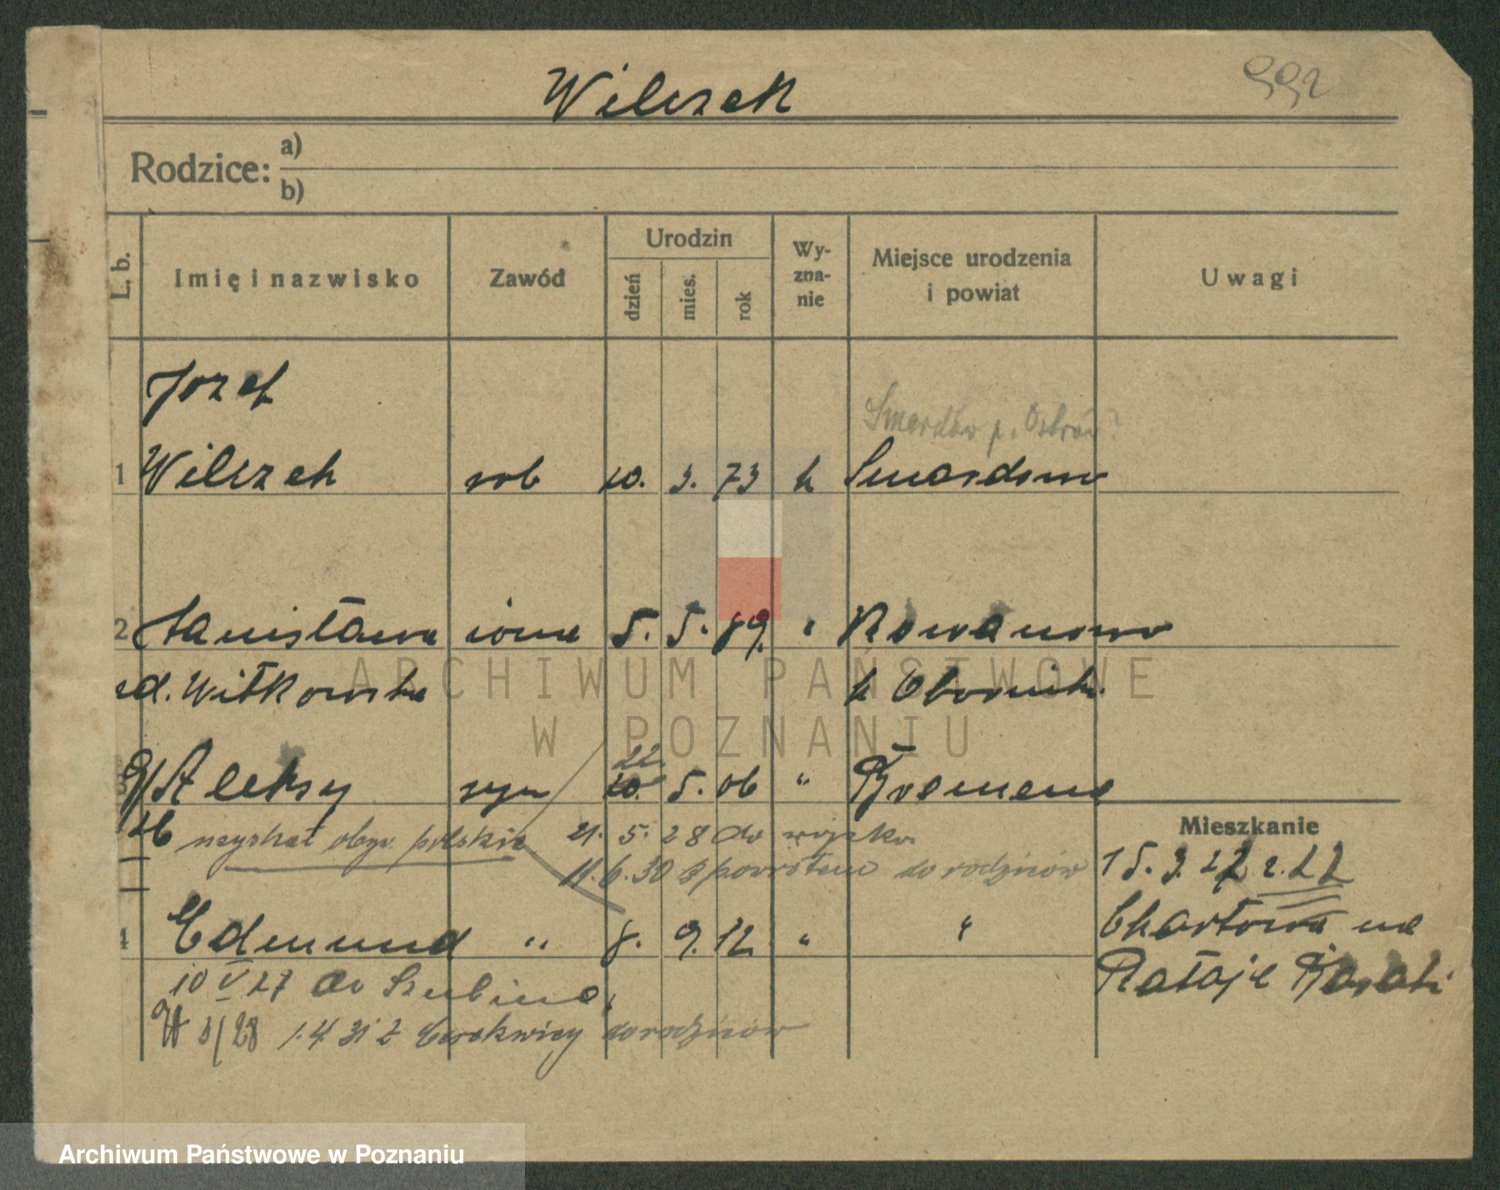 Wilczek
992
Rodzice: a)
b)
L. b.
Imię i nazwisko
Zawód
Urodzin
dzień
mies.
rok
Wy-
zna-
nie
Miejsce urodzenia
i powiat
Uwagi
Józef
Smardów p. Ostrów?
1 Wilczek rob 10. 3. 73 k Smardowo
2 Stanisława żona 5. 5. 89. " Rowanowo
zd. Witkowska k Obornik.
22
3 Aleksy syn 10. 5. 06 " Bremen
uzyskał obyw. polskie 21. 5. 28 do wojska
11. 6. 30 z powrotem do rodziców
Mieszkanie
15. 3. 27
4 Edmund " 8. 9. 12 " "
Chartowa na
10 V 27 do Szubina
Rataje Baraki
3/28 1. 4. 31 z Cerekwicy do rodziców
ARCHIWUM PAŃSTWOWE
W POZNANIU
Archiwum Państwowe w Poznaniu